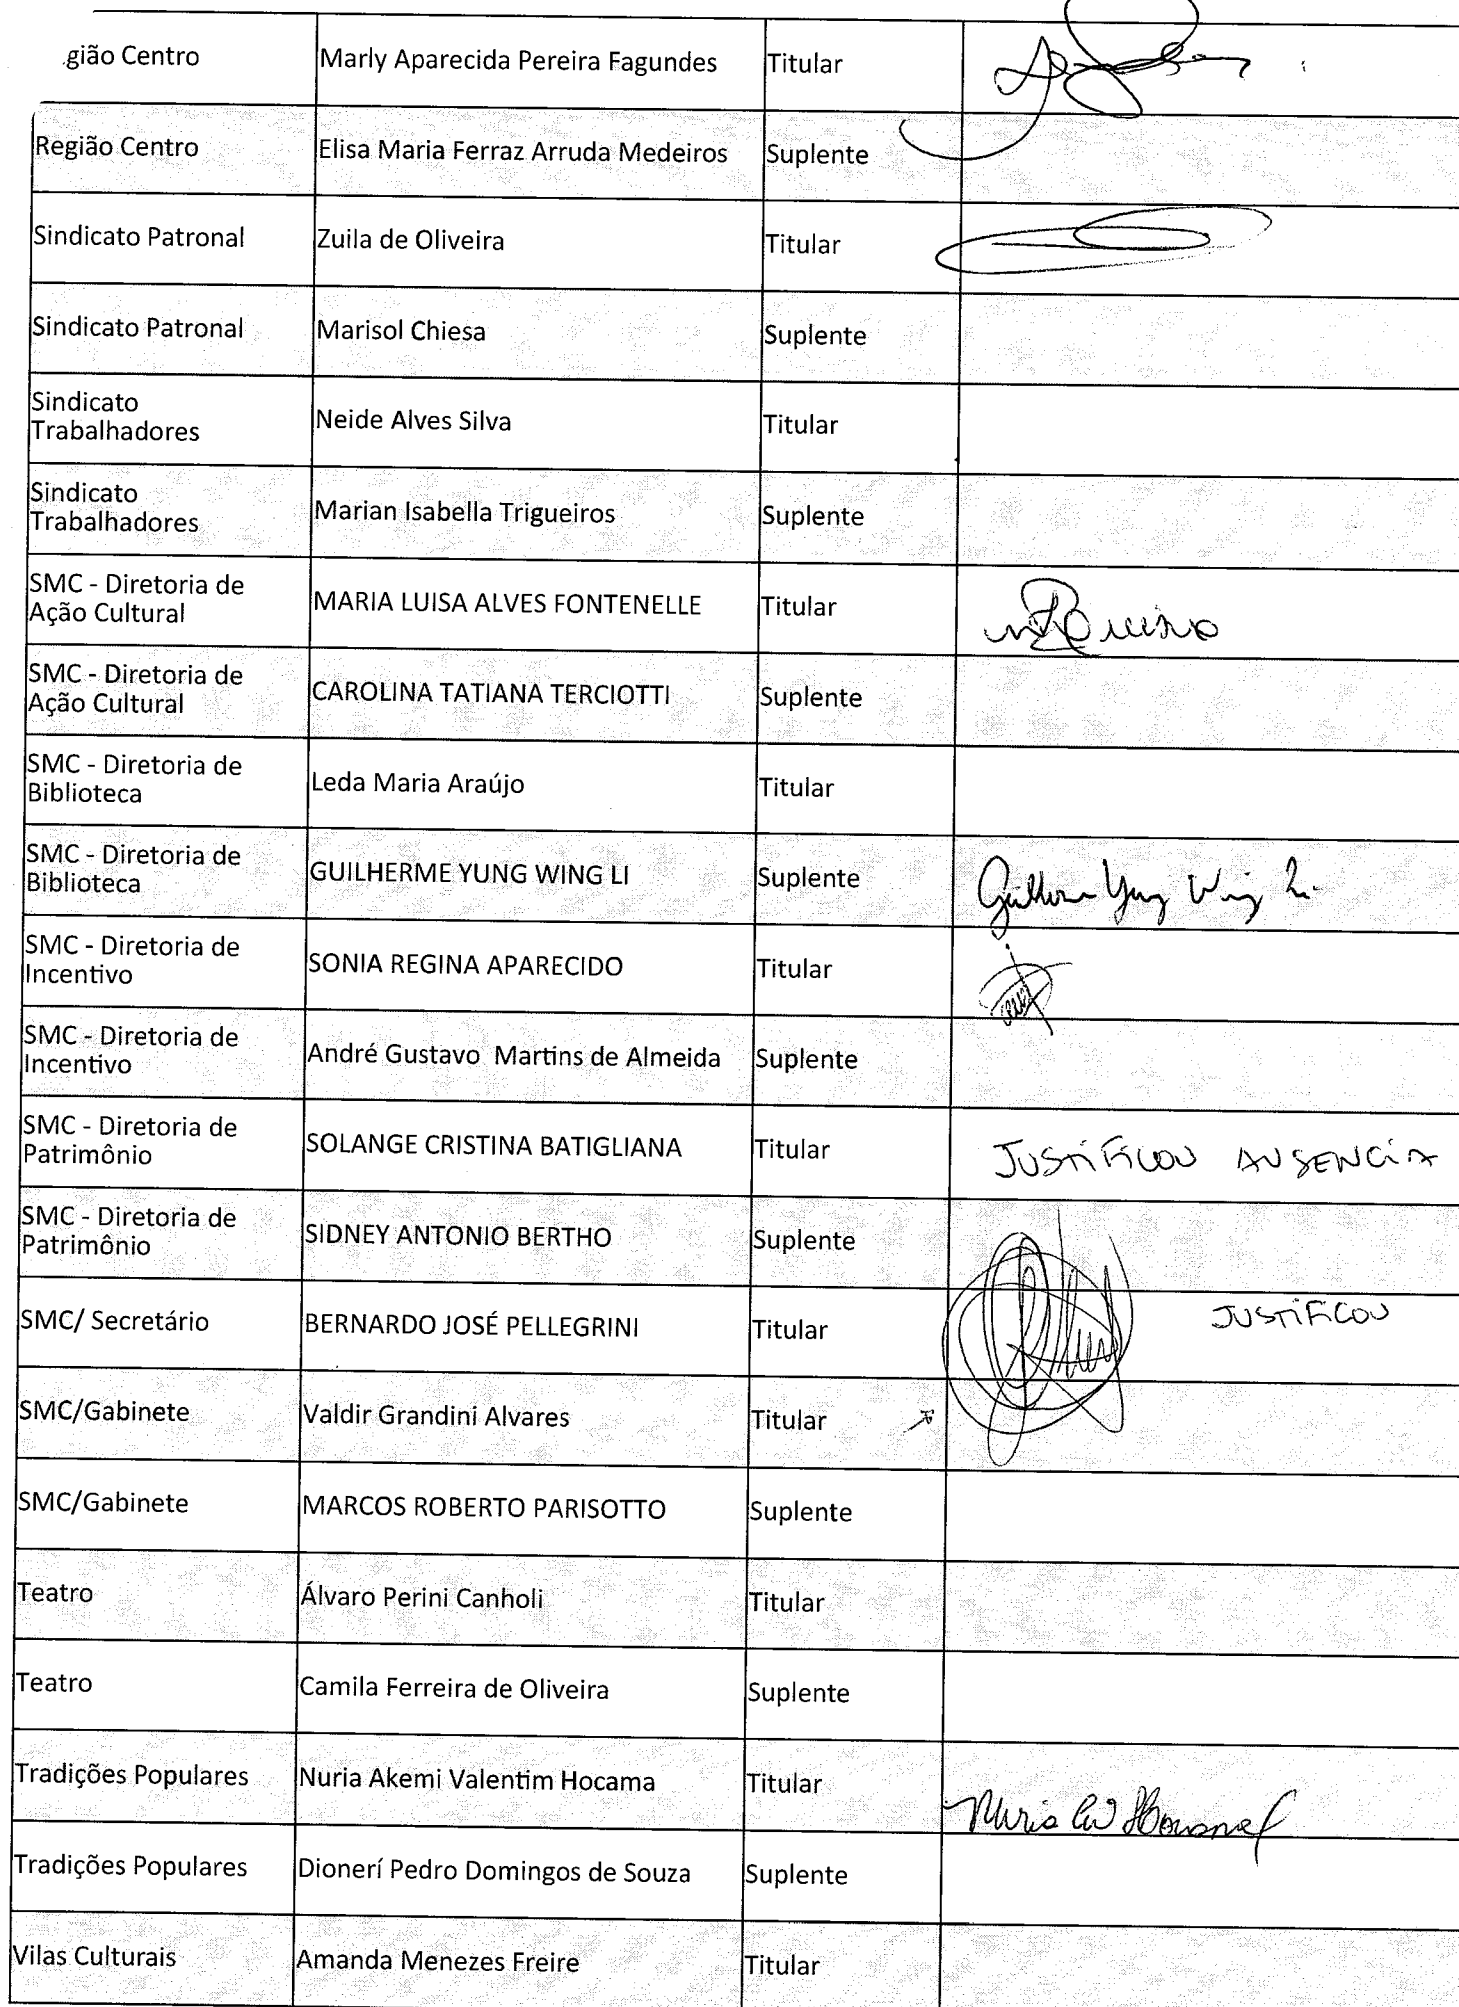 gião Centro Marly Aparecida Pereira Fagundes Titular
Região Centro Elisa Maria Ferraz Arruda Medeiros Suplente
Sindicato Patronal Zuila de Oliveira Titular
Sindicato Patronal Marisol Chiesa Suplente
Sindicato
Trabalhadores Neide Alves Silva Titular
Sindicato
Trabalhadores Marian Isabella Trigueiros Suplente
SMC - Diretoria de
Ação Cultural MARIA LUISA ALVES FONTENELLE Titular
SMC - Diretoria de
Ação Cultural CAROLINA TATIANA TERCIOTTI Suplente
SMC - Diretoria de
Biblioteca Leda Maria Araújo Titular
SMC - Diretoria de
Biblioteca GUILHERME YUNG WING LI Suplente Guilherme Yung Wing Li
SMC - Diretoria de
Incentivo SONIA REGINA APARECIDO Titular
SMC - Diretoria de
Incentivo André Gustavo Martins de Almeida Suplente
SMC - Diretoria de
Patrimônio SOLANGE CRISTINA BATIGLIANA Titular JUSTIFICOU AUSENCIA
SMC - Diretoria de
Patrimônio SIDNEY ANTONIO BERTHO Suplente
SMC/ Secretário BERNARDO JOSÉ PELLEGRINI Titular JUSTIFICOU
SMC/Gabinete Valdir Grandini Alvares Titular
SMC/Gabinete MARCOS ROBERTO PARISOTTO Suplente
Teatro Álvaro Perini Canholi Titular
Teatro Camila Ferreira de Oliveira Suplente
Tradições Populares Nuria Akemi Valentim Hocama Titular
Tradições Populares Dionerí Pedro Domingos de Souza Suplente
Vilas Culturais Amanda Menezes Freire Titular